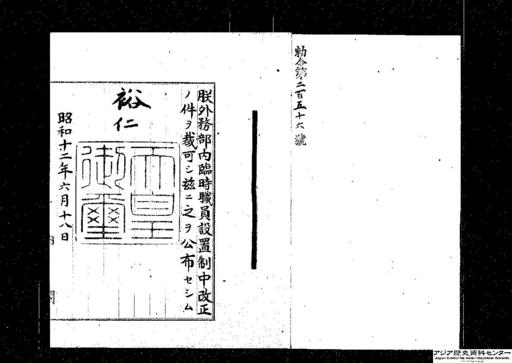 勅令第二百五十六號
朕外務部内臨時職員設置制中改正
ノ件ヲ裁可シ茲ニ之ヲ公布セシム
裕仁
天皇御璽
昭和十二年六月十八日
アジア歴史資料センター
Japan Center for Asian Historical Records